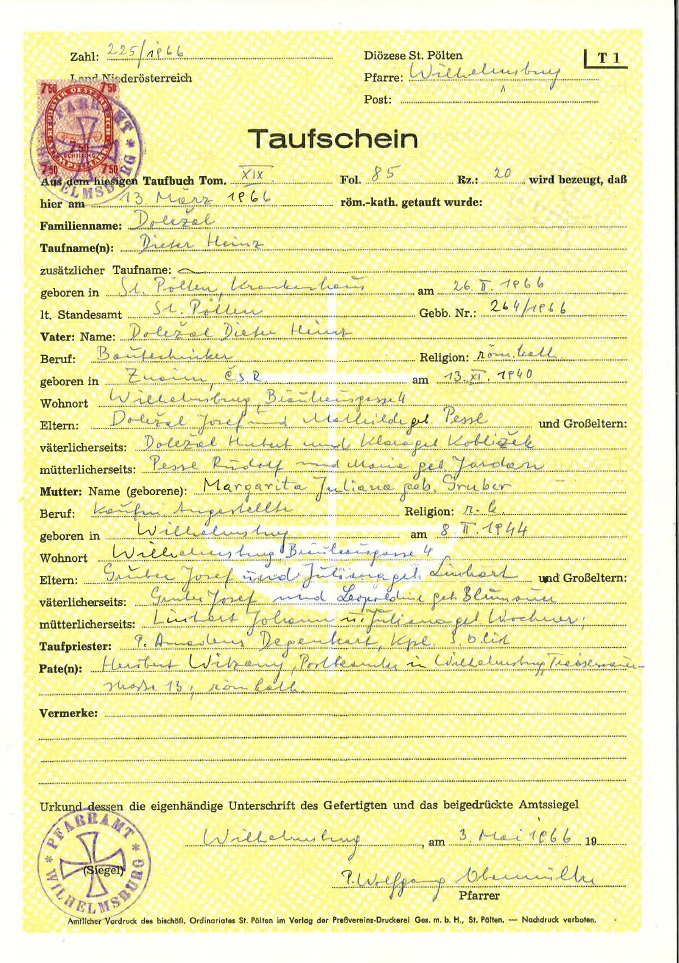 Zahl: 225/1966
Diözese St. Pölten
T 1
Land Niederösterreich
Pfarre: Wilhelmsburg
Post:
7 50 7 50
REPUBLIK OESTERREICH
7.50
SCHILLING
7 50 7 50
PFARRAMT WILHELMSBURG
Taufschein
Aus dem hiesigen Taufbuch Tom. XIX Fol. 85 Rz.: 20 wird bezeugt, daß
hier am 13 März 1966 röm.-kath. getauft wurde:
Familienname: Doležal
Taufname(n): Dieter Heinz
zusätzlicher Taufname:
geboren in St. Pölten, Krankenhaus am 26. II. 1966
lt. Standesamt St. Pölten Gebb. Nr.: 264/1966
Vater: Name: Doležal Dieter Heinz
Beruf: Bautechniker Religion: röm. kath
geboren in Znaim, ČSR am 13. XI. 1940
Wohnort Wilhelmsburg, 4
Eltern: Doležal Josef und Mathilde geb. Pesse und Großeltern:
väterlicherseits: Doležal Hubert und Klara geb Kobližek
mütterlicherseits: Pesse Rudolf und Maria geb Jordan
Mutter: Name (geborene): Margarita Juliana geb. Gruber
Beruf: Kaufm Angestellte Religion: r. k.
geboren in Wilhelmsburg am 8 II. 1944
Wohnort Wilhelmsburg 4
Eltern: Gruber Josef und Juliana geb. Linhart und Großeltern:
väterlicherseits: Gruber Josef und Leopoldine geb.
mütterlicherseits: Linhart Johann u. Juliana geb
Taufpriester: P. Amadeus Degenhart, Kpl.
Pate(n): Herbert Witzany, Postbeamter in Wilhelmsburg,
straße 13, röm kath.
Vermerke:
Urkund dessen die eigenhändige Unterschrift des Gefertigten und das beigedrückte Amtssiegel
PFARRAMT WILHELMSBURG
(Siegel)
Wilhelmsburg, am 3. Mai 1966 19
P. Wolfgang
Pfarrer
Amtlicher Vordruck des bischöfl. Ordinariates St. Pölten im Verlag der Preßvereins-Druckerei Ges. m. b. H., St. Pölten. — Nachdruck verboten.